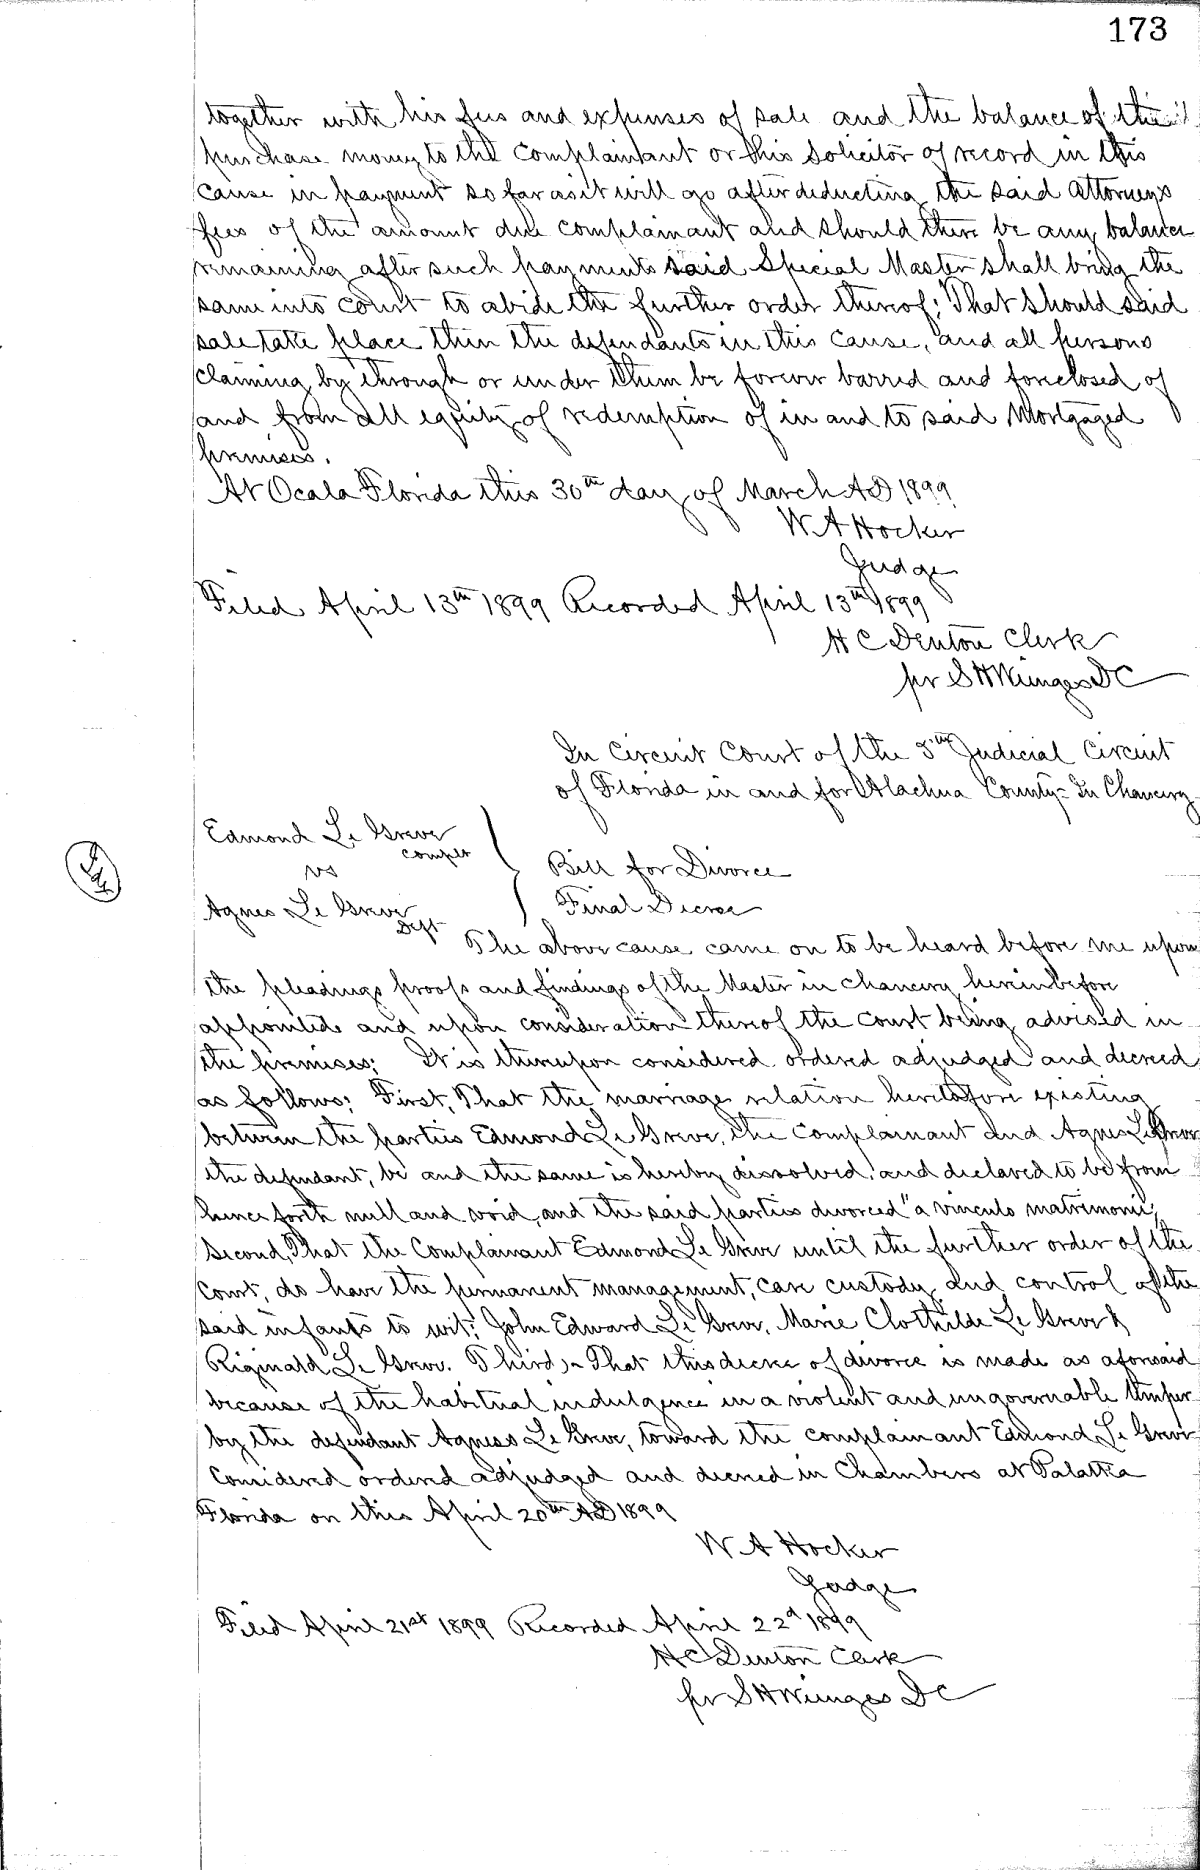 173
together with his fees and expenses of sale and the balance of the
purchase money to the Complainant or his Solicitor of record in this
cause in payment so far as it will go after deducting the said Attorneys
fees of the amount due complainant and should there be any balance
remaining after such payments said Special Master shall bring the
same into court to abide the further order thereof; That should said
sale take place then the defendants in this cause, and all persons
claiming by through or under them be forever barred and foreclosed of
and from all equity of redemption of in and to said Mortgaged
premises.
At Ocala Florida this 30th day of March AD 1899
W A Hocker
Judge
Filed April 13th 1899 Recorded April 13th 1899
H C Denton Clerk
pr S H Wienges DC
In Circuit Court of the 5th Judicial Circuit
of Florida in and for Alachua County - In Chancery
Edmond Le Greve
Compt
vs
Bill for Divorce
Agnes Le Greve
Deft
Final Decree
The above cause came on to be heard before me upon
the pleadings proofs and findings of the Master in Chancery hereinbefore
appointed and upon consideration thereof the court being advised in
the premises; It is thereupon considered ordered adjudged and decreed
as follows; First, That the marriage relation heretofore existing
between the parties Edmond Le Greve, the Complainant and Agnes Le Greve
the defendant, be and the same is hereby dissolved, and declared to be from
hence forth null and void, and the said parties divorced "a vinculo matrimonii;
Second, That the Complainant Edmond Le Greve until the further order of the
Court, do have the permanent management, care custody and control of the
said infants to wit; John Edward Le Greve, Marie Clothilde Le Greve &
Riginald Le Greve. Third, - That this decree of divorce is made as aforesaid
because of the habitual indulgence in a violent and ungovernable temper
by the defendant Agness Le Greve, toward the complainant Edmond Le Greve
Considered ordered adjudged and decreed in Chambers at Palatka
Florida on this April 20th AD 1899
W A Hocker
Judge
Filed April 21st 1899 Recorded April 22d 1899
H C Denton Clerk
pr S H Wienges DC